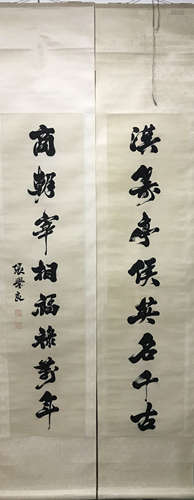 漢象亭侯英名千古
商朝宰相福祿萬年
張學良